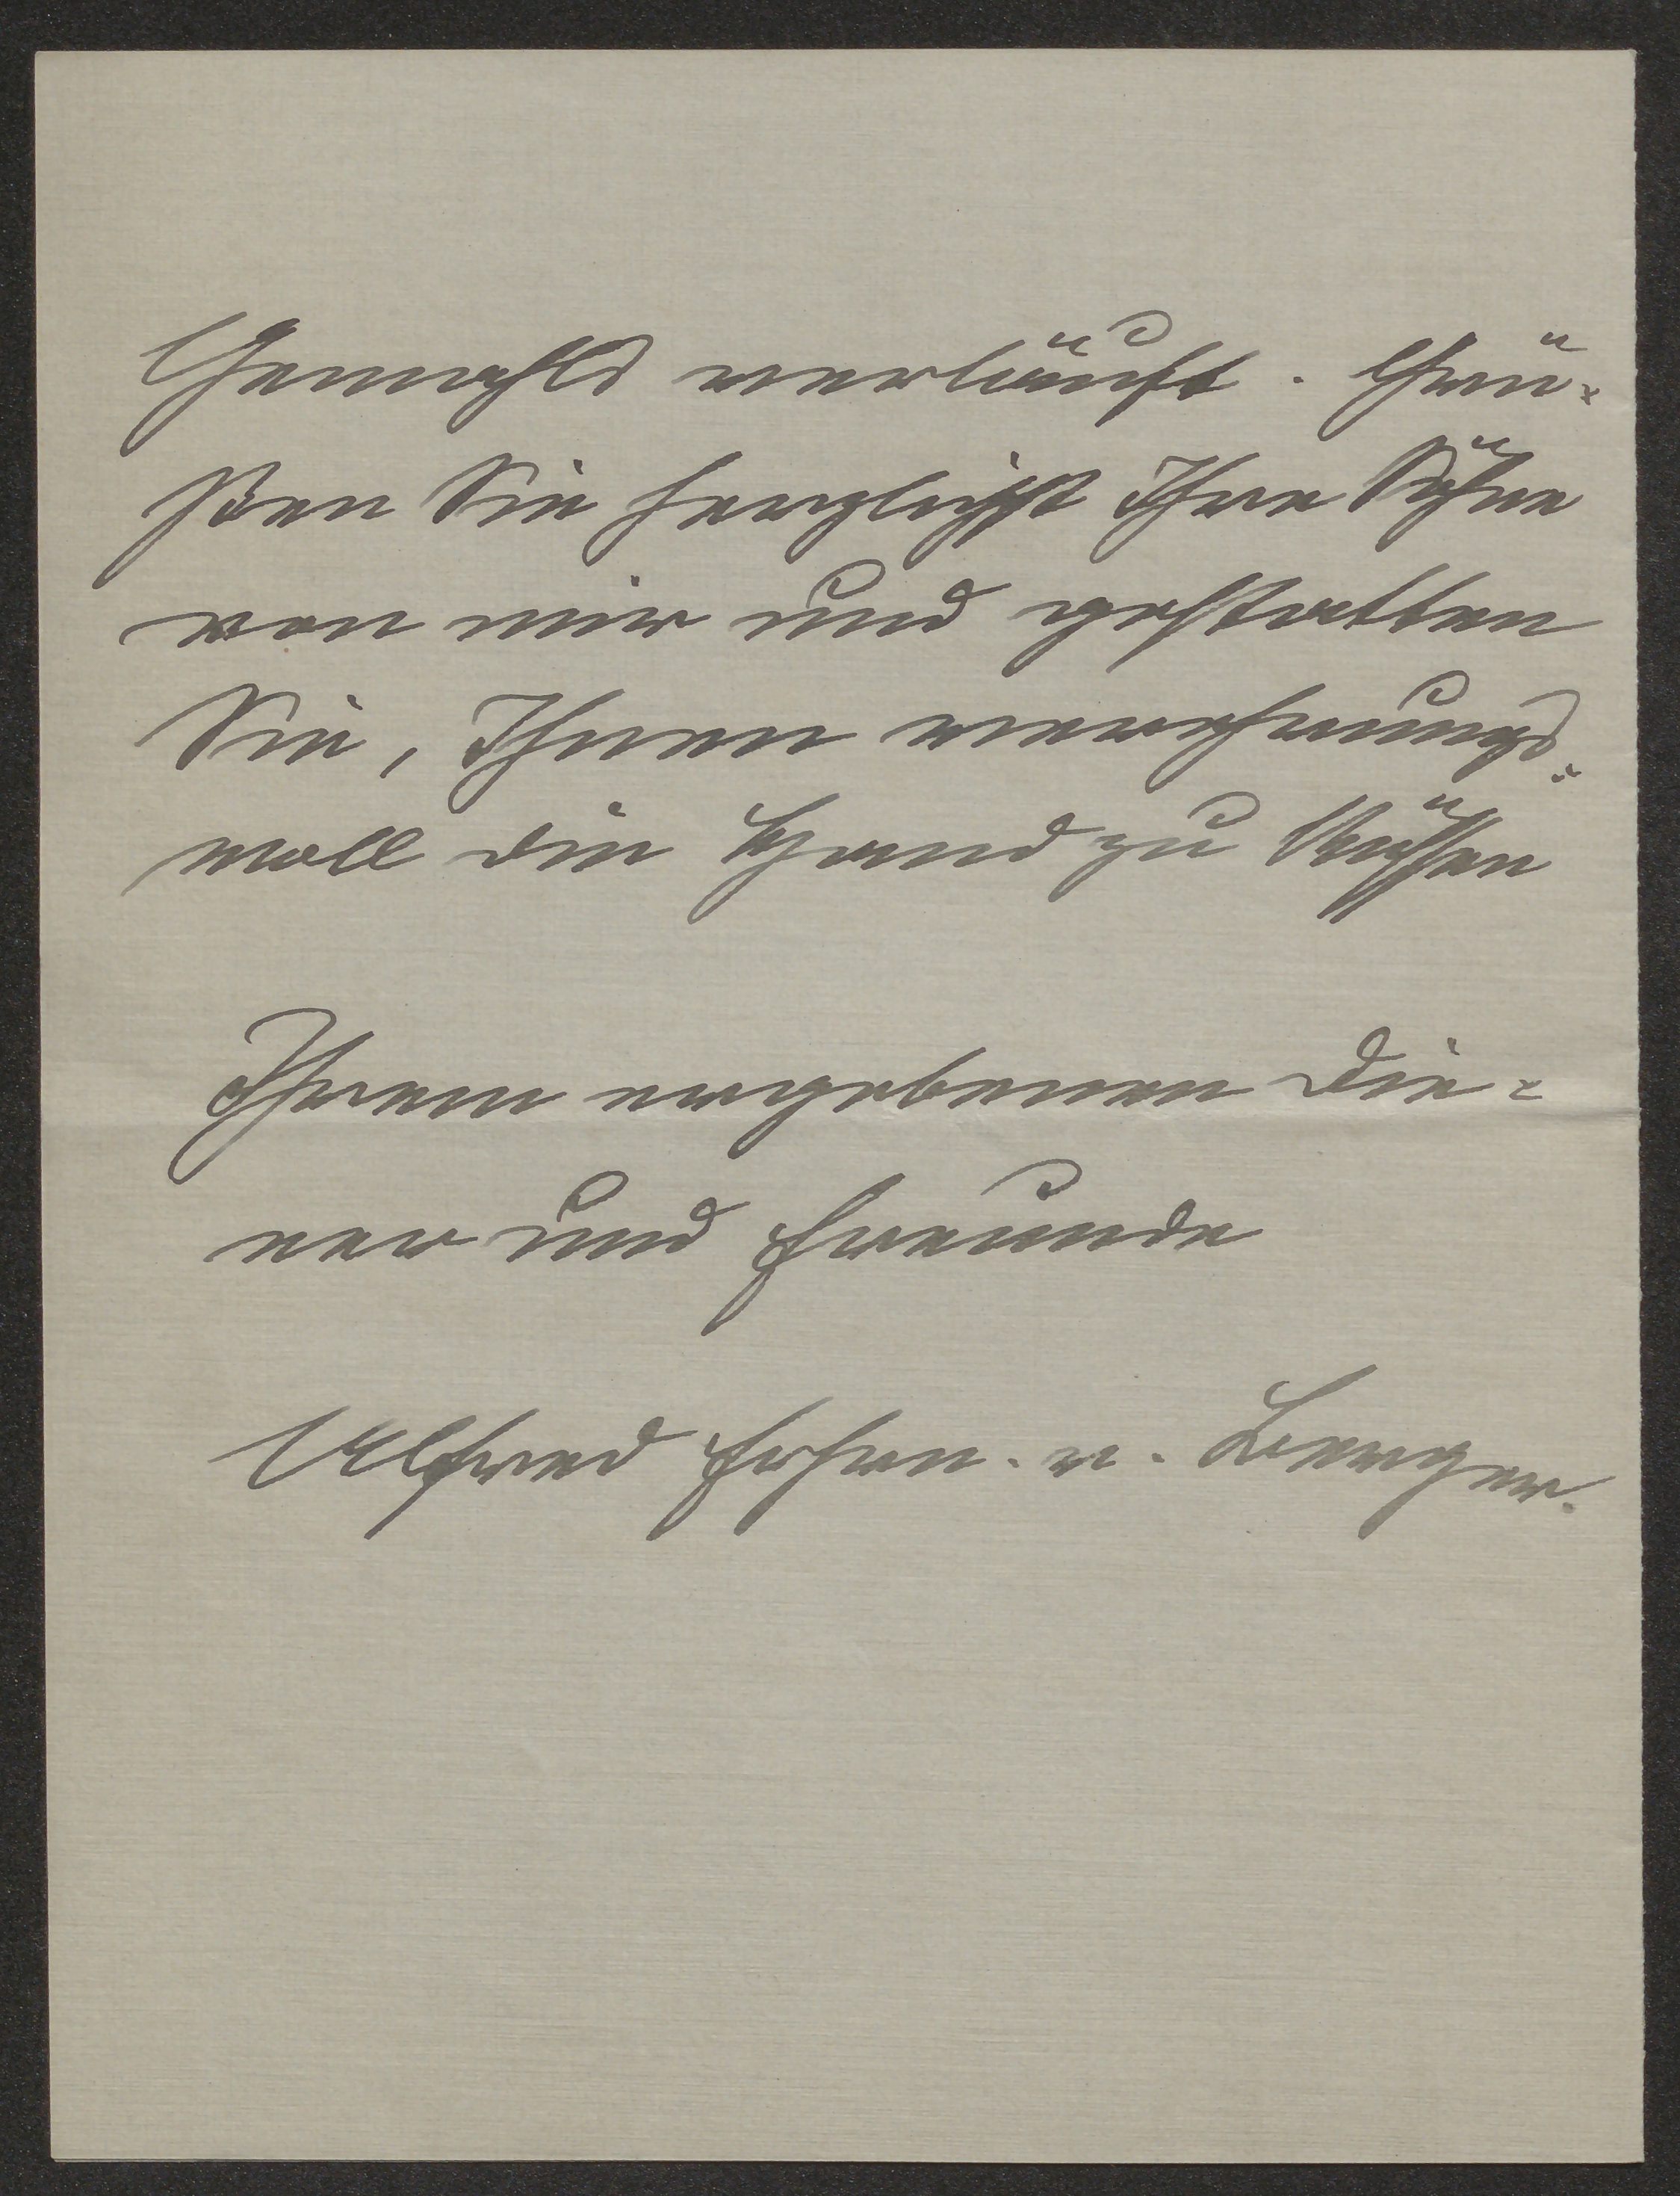 Gemahls verläuft. Grü-
ßen Sie herzlichst Ihre Söhne
von mir und gestatten
Sie, Ihnen verehrungs-
voll die Hand zu küssen
Ihrem ergebenen Die-
ner und Freunde
Alfred Frhrn. v. Berger.